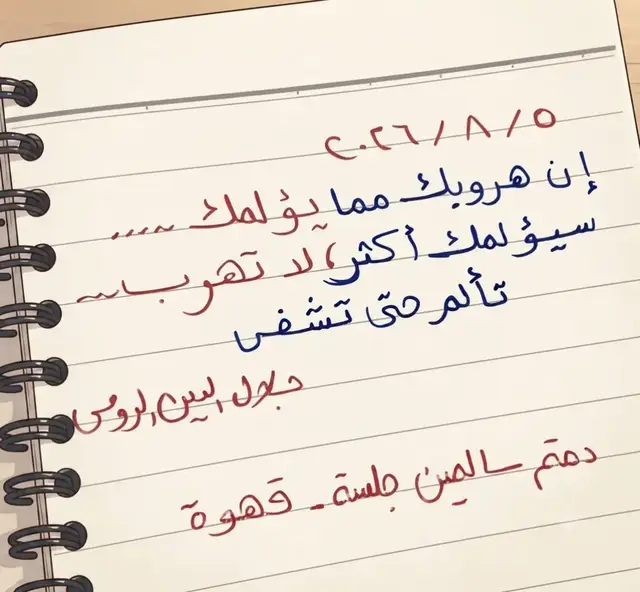 ٢٠٢٦/٨/٥
إن هروبك مما يؤلمك ....
سيؤلمك أكثر، لا تهرب~~
تألم حتى تشفى
جلال الدين الرومي
دمتم سالمين جلسة - قهوة